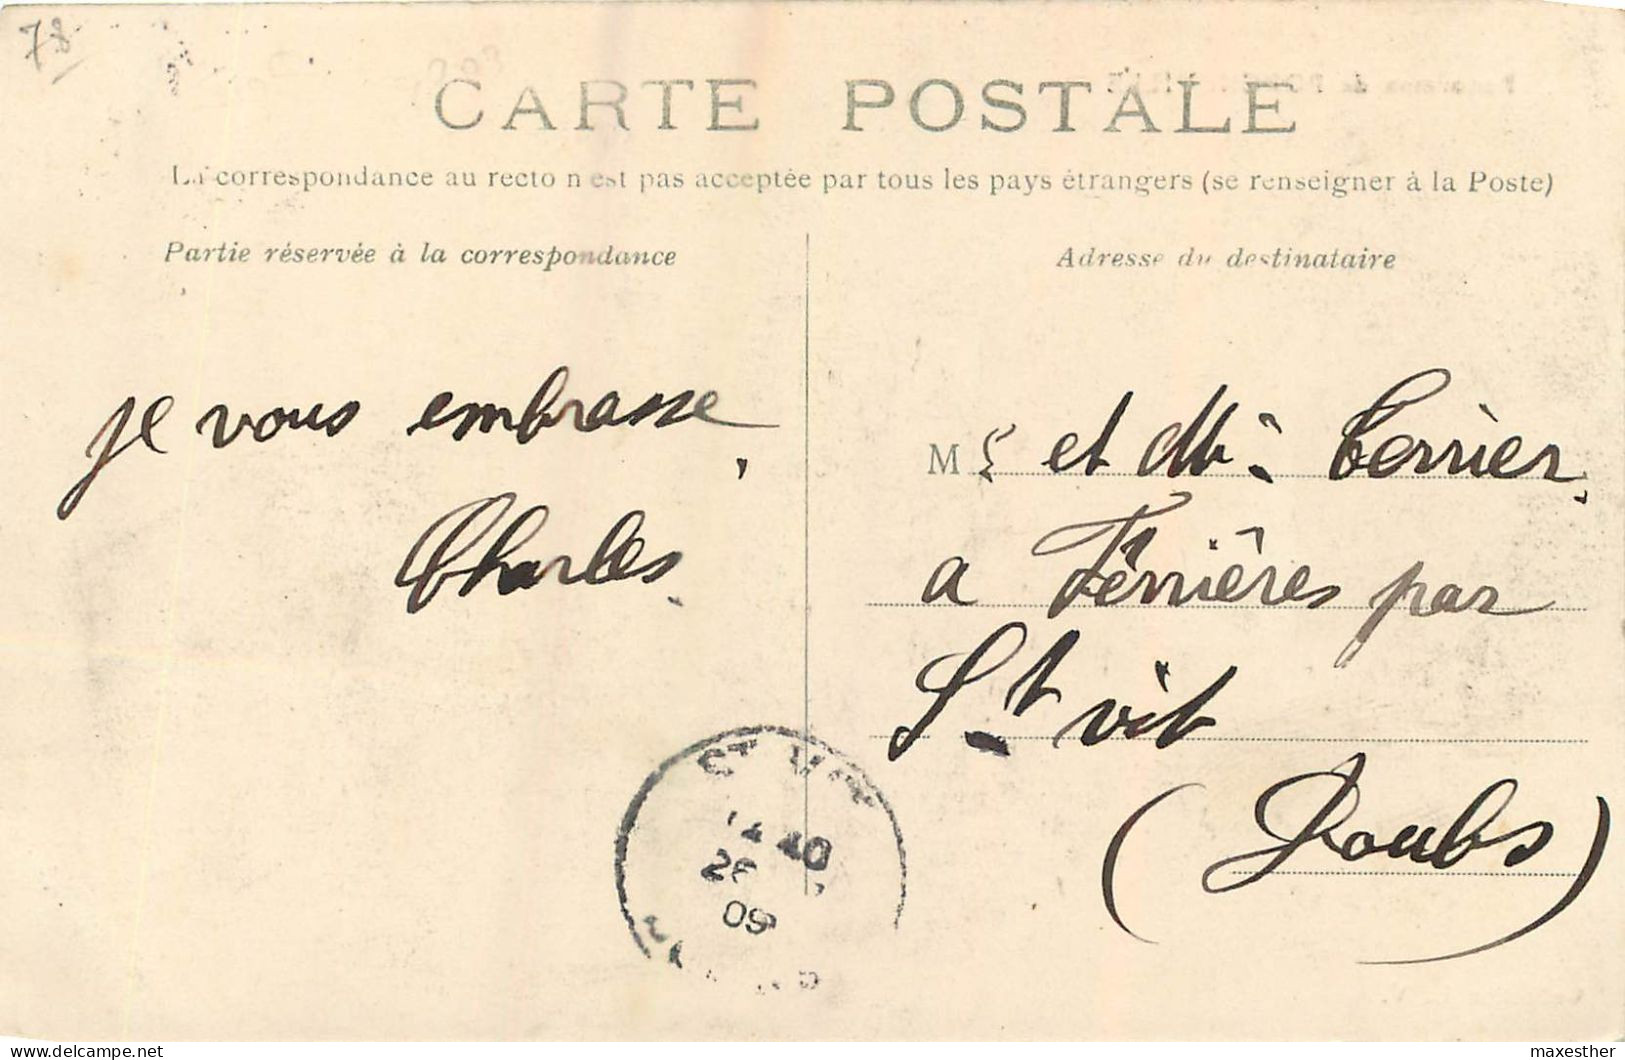 78
CARTE POSTALE
La correspondance au recto n'est pas acceptée par tous les pays étrangers (se renseigner à la Poste)
Partie réservée à la correspondance
Adresse du destinataire
je vous embrasse,
Charles.
M r et Me Terrier.
a Ferrières par
St vit
(Doubs)
ST VIT
12 40
26
09
www.delcampe.net
maxesther